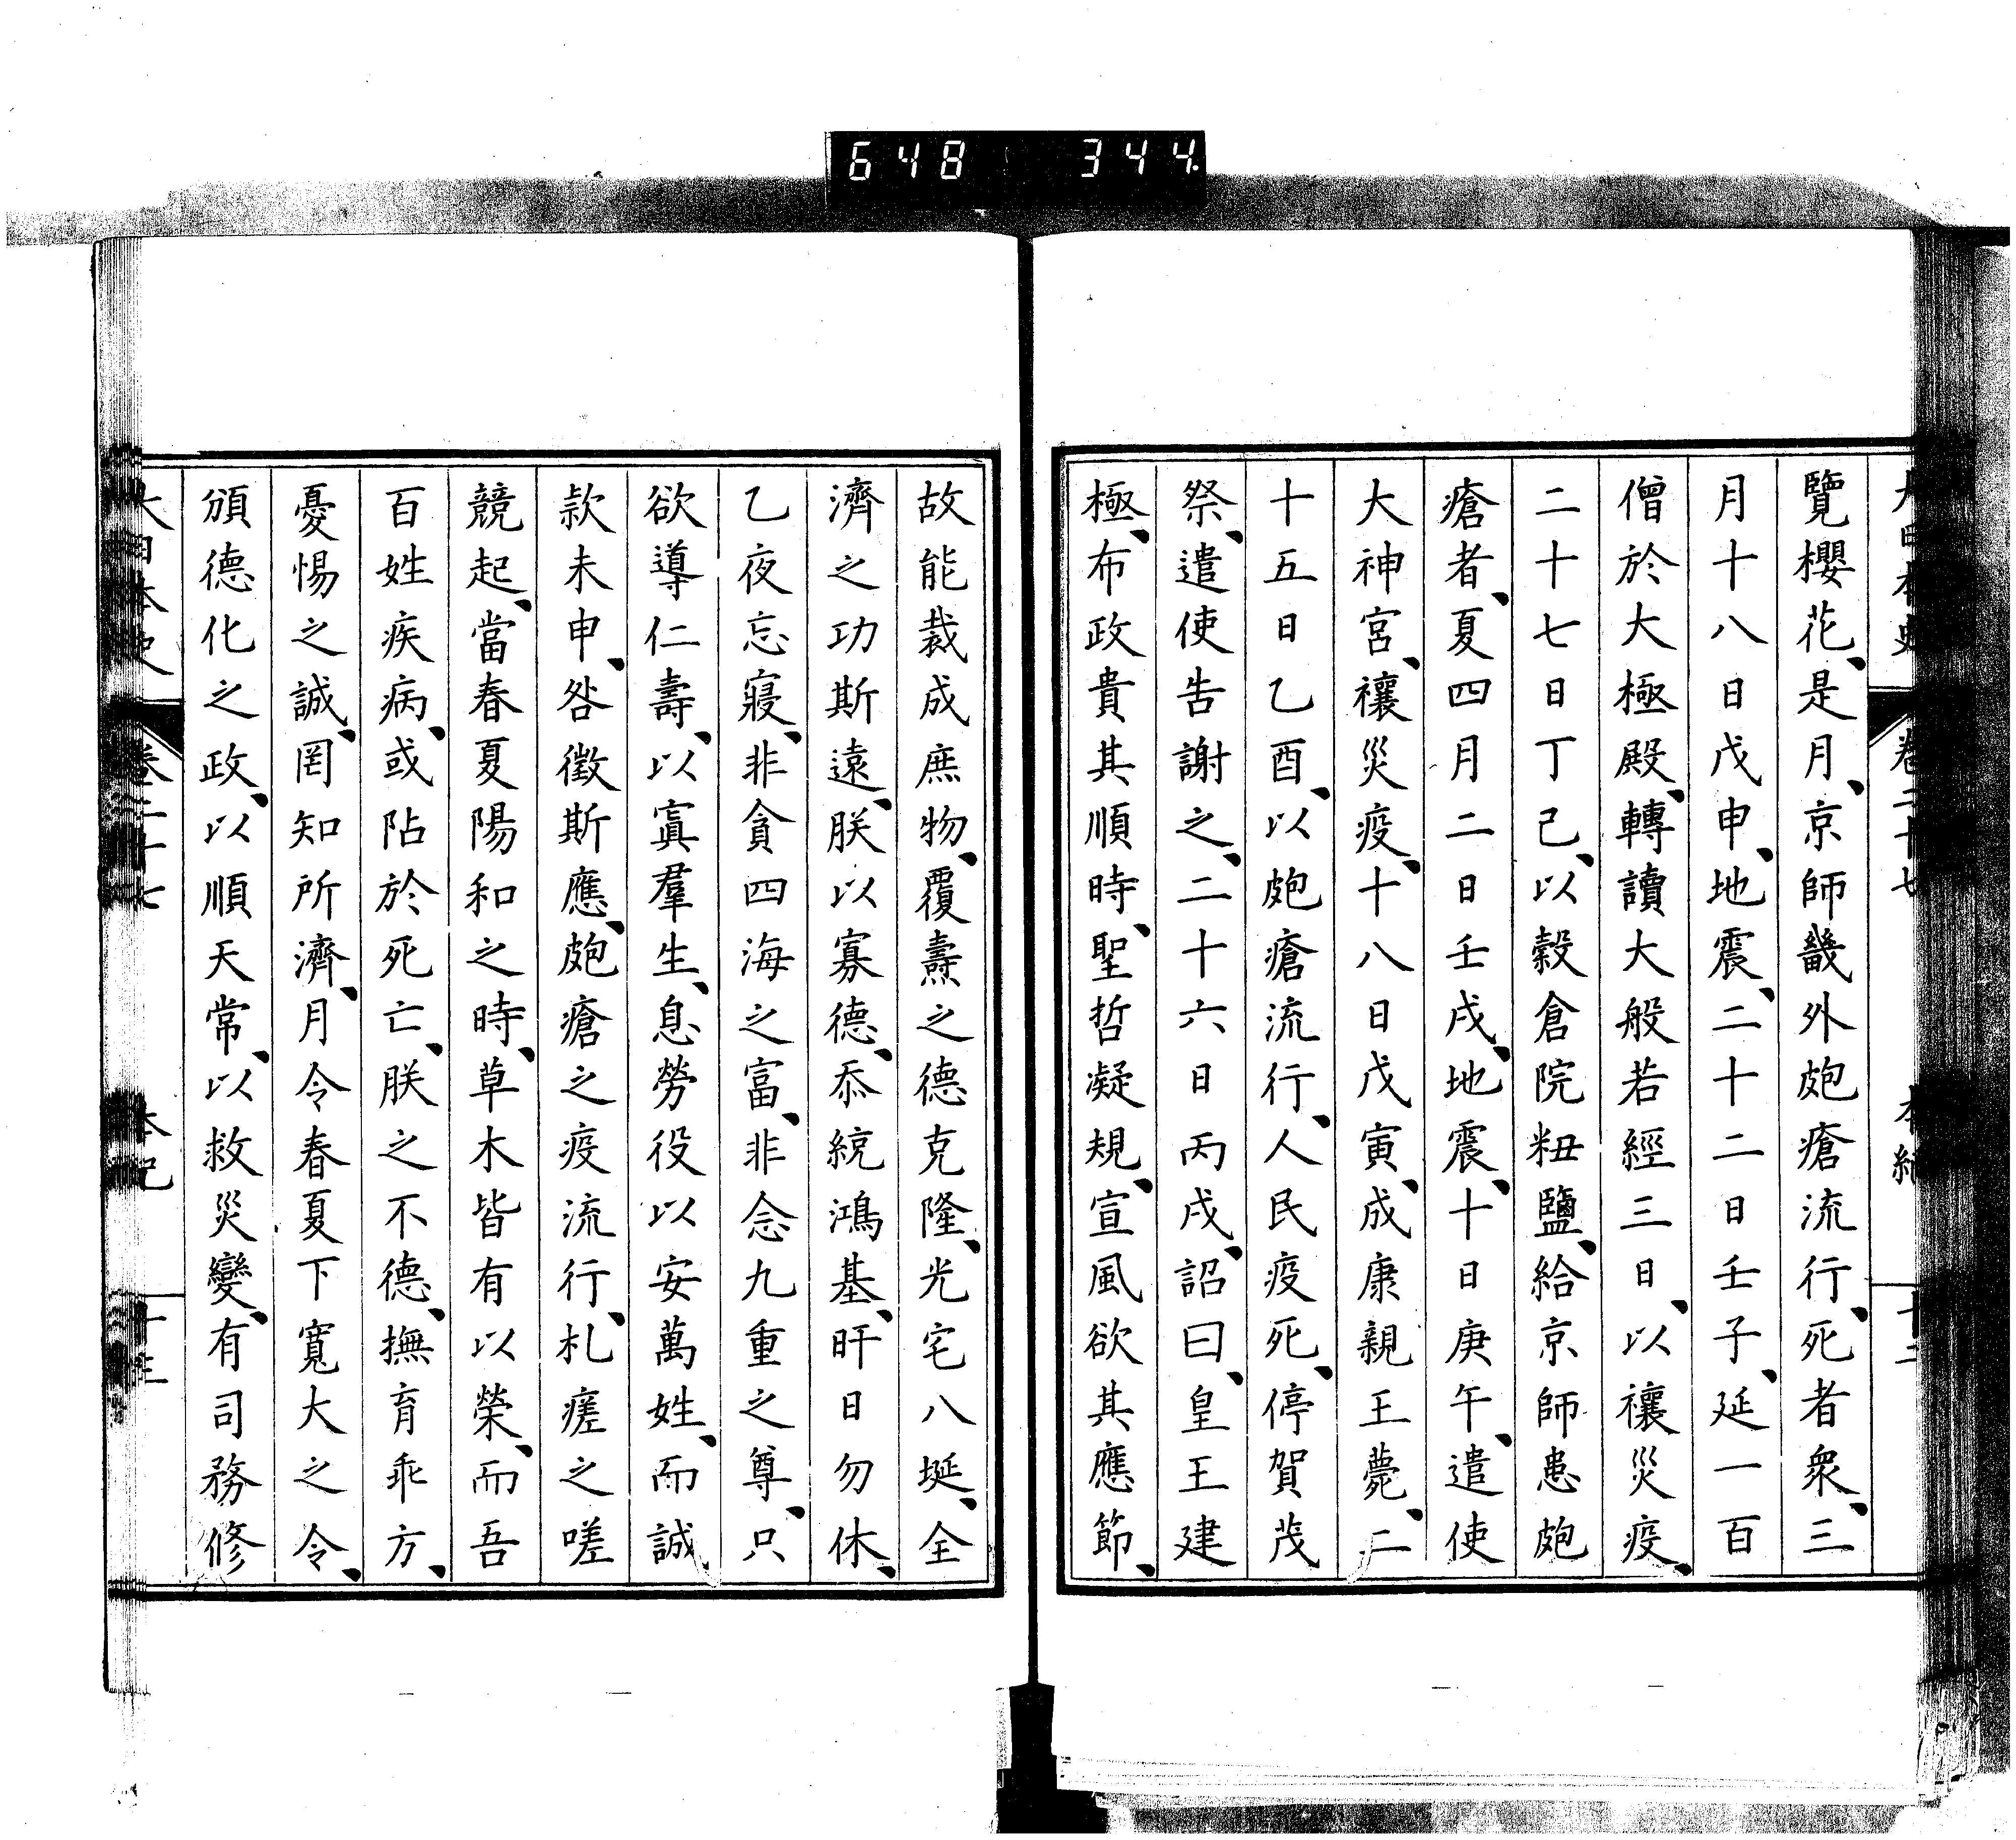 648 344.
大日本史 卷二十七 本紀 十二
覽櫻花、是月、京師畿外皰瘡流行、死者衆、三
月十八日戊申、地震、二十二日壬子、延一百
僧於大極殿、轉讀大般若經三日、以禳災疫、
二十七日丁己、以穀倉院粈鹽、給京師患皰
瘡者、夏四月二日壬戌、地震、十日庚午、遣使
大神宮、禳災疫、十八日戊寅、成康親王薨、二
十五日乙酉、以皰瘡流行、人民疫死、停賀茂
祭、遣使告謝之、二十六日丙戌、詔曰、皇王建
極、布政貴其順時、聖哲凝規、宣風欲其應節、
故能裁成庶物、覆燾之德克隆、光宅八埏、全
濟之功斯遠、朕以寡德、忝統鴻基、旰日勿休、
乙夜忘寢、非貪四海之富、非念九重之尊、只
欲導仁壽、以寘羣生、息勞役以安萬姓、而誠
款未申、咎徵斯應、皰瘡之疫流行、札瘥之嗟
競起、當春夏陽和之時、草木皆有以榮、而吾
百姓疾病、或阽於死亡、朕之不德、撫育乖方、
憂惕之誠、罔知所濟、月令春夏下寬大之令、
頒德化之政、以順天常、以救災變、有司務修
大日本史 卷二十七 本紀 十三